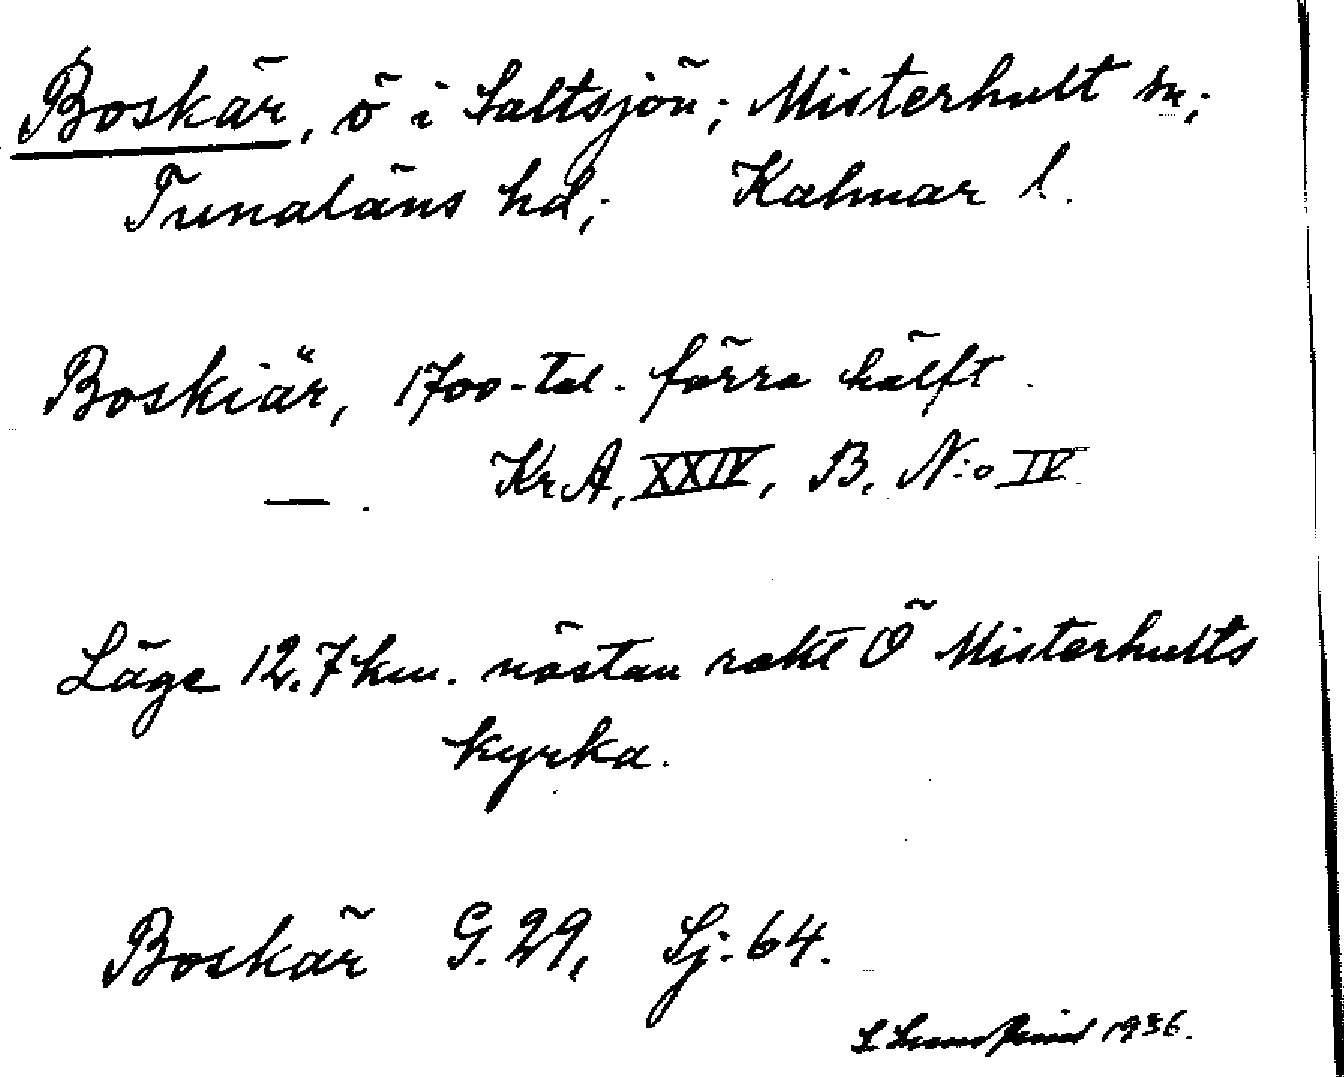 Boskär, ö i Saltsjön; Misterhult sn;
Tunaläns hd; Kalmar l.
Boskiär, 1700-tal. förra hälft.
— . Kr.A, XXIV, B, N:o IV
Läge 12.7 km. nästan rakt Ö Misterhults
kyrka.
Boskär G. 29, Sj. 64.
1936.